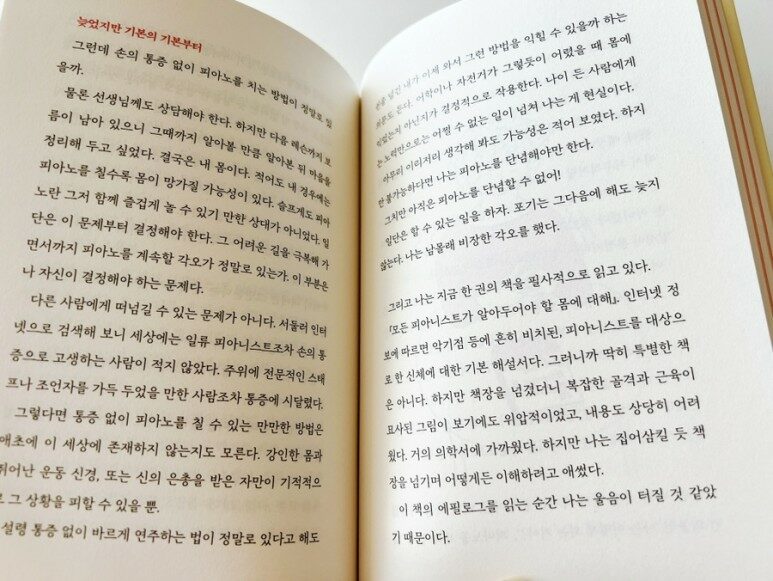 늦었지만 기본의 기본부터
그런데 손의 통증 없이 피아노를 치는 방법이 정말로 있
을까.
물론 선생님께도 상담해야 한다. 하지만 다음 레슨까지 보
름이 남아 있으니 그때까지 알아볼 만큼 알아본 뒤 마음을
정리해 두고 싶었다. 결국은 내 몸이다. 적어도 내 경우에는
피아노를 칠수록 몸이 망가질 가능성이 있다. 슬프게도 피아
노란 그저 함께 즐겁게 놀 수 있기 만한 상대가 아니었다. 일
단은 이 문제부터 결정해야 한다. 그 어려운 길을 극복해 가
면서까지 피아노를 계속할 각오가 정말로 있는가. 이 부분은
나 자신이 결정해야 하는 문제다.
다른 사람에게 떠넘길 수 있는 문제가 아니다. 서둘러 인터
넷으로 검색해 보니 세상에는 일류 피아니스트조차 손의 통
증으로 고생하는 사람이 적지 않았다. 주위에 전문적인 스태
프나 조언자를 가득 두었을 만한 사람조차 통증에 시달렸다.
그렇다면 통증 없이 피아노를 칠 수 있는 만만한 방법은
애초에 이 세상에 존재하지 않는지도 모른다. 강인한 몸과
뛰어난 운동 신경, 또는 신의 은총을 받은 자만이 기적적으
로 그 상황을 피할 수 있을 뿐.
설령 통증 없이 바르게 연주하는 법이 정말로 있다고 해도
넘긴 내가 이제 와서 그런 방법을 익힐 수 있을까 하는
의문도 든다. 어학이나 자전거가 그렇듯이 어렸을 때 몸에
익었는지 아닌지가 결정적으로 작용한다. 나이 든 사람에게
는 노력만으로는 어쩔 수 없는 일이 넘쳐 나는 게 현실이다.
아무리 이리저리 생각해 봐도 가능성은 적어 보였다. 하지
만 불가능하다면 나는 피아노를 단념해야만 한다.
그치만 아직은 피아노를 단념할 수 없어!
일단은 할 수 있는 일을 하자. 포기는 그다음에 해도 늦지
않는다. 나는 남몰래 비장한 각오를 했다.
그리고 나는 지금 한 권의 책을 필사적으로 읽고 있다.
『모든 피아니스트가 알아두어야 할 몸에 대해』. 인터넷 정
보에 따르면 악기점 등에 흔히 비치된, 피아니스트를 대상으
로 한 신체에 대한 기본 해설서다. 그러니까 딱히 특별한 책
은 아니다. 하지만 책장을 넘겼더니 복잡한 골격과 근육이
묘사된 그림이 보기에도 위압적이었고, 내용도 상당히 어려
웠다. 거의 의학서에 가까웠다. 하지만 나는 집어삼킬 듯 책
장을 넘기며 어떻게든 이해하려고 애썼다.
이 책의 에필로그를 읽는 순간 나는 울음이 터질 것 같았
기 때문이다.